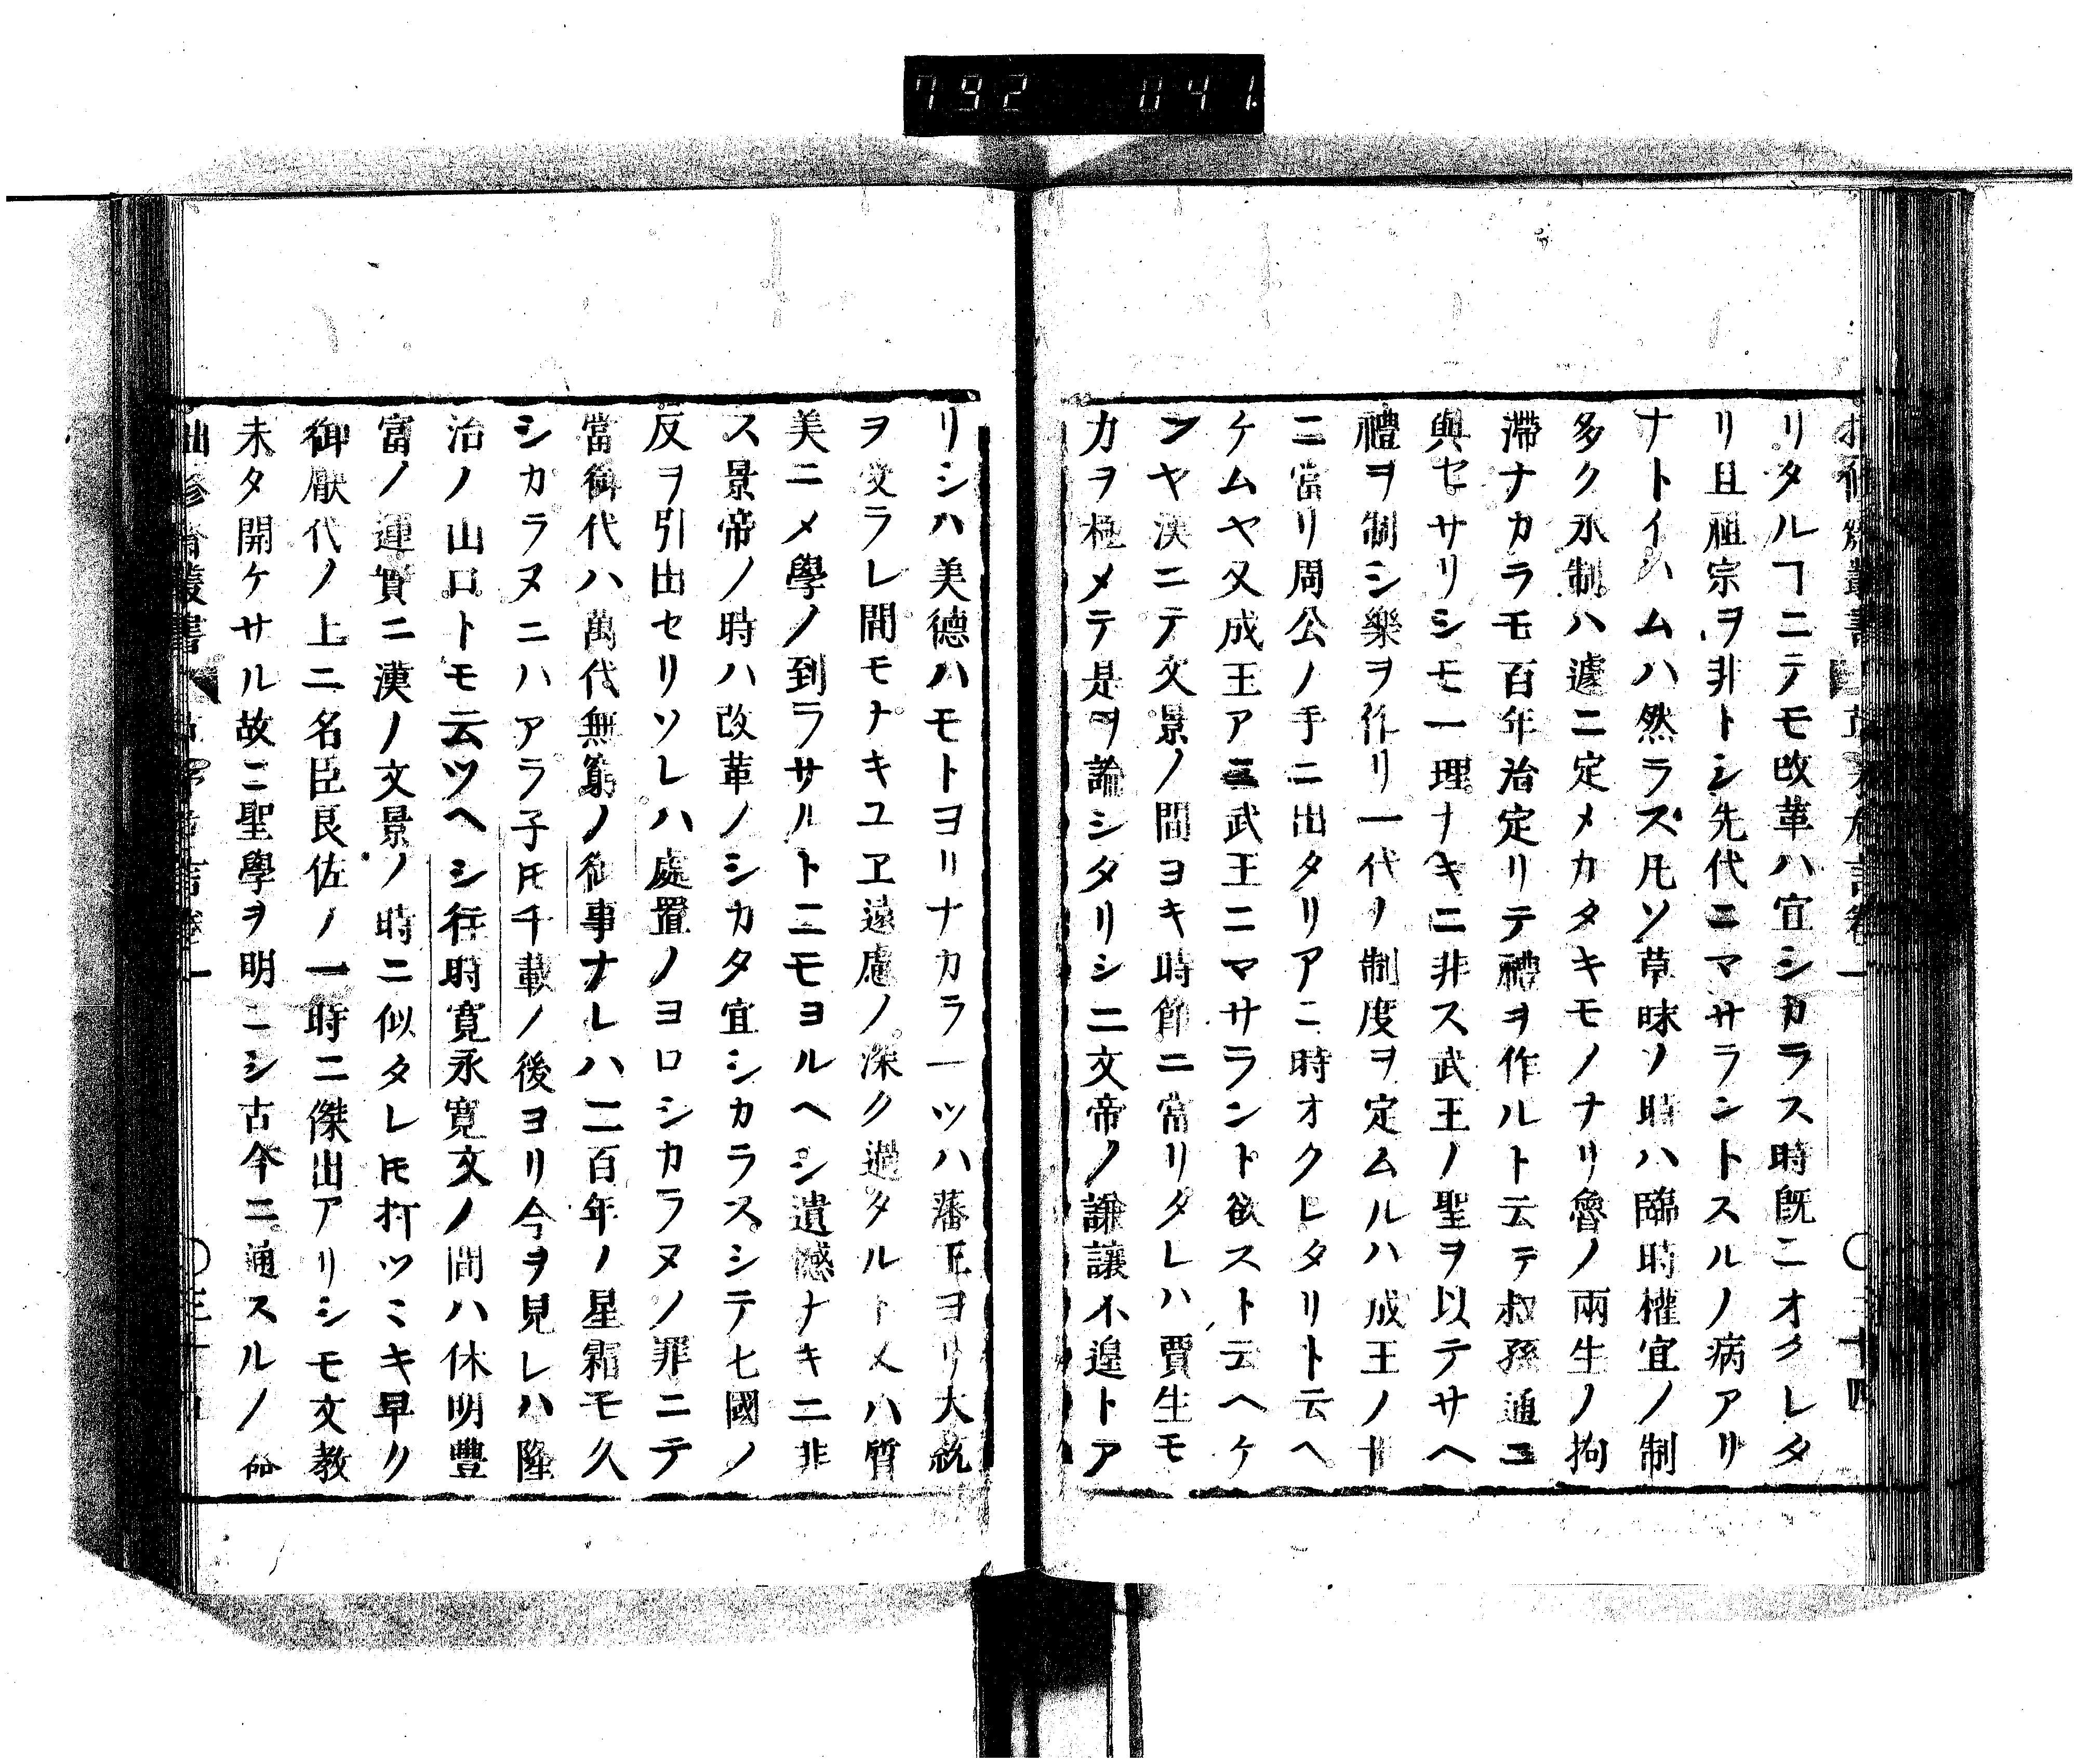 792 041
リタルヿニテモ改革ハ宜シカラス時既ニオクレタ
リ且祖宗ヲ非トシ先代ニマサラントスルノ病アリ
ナトイハムハ然ラス凡ソ草昧ノ時ハ臨時權宜ノ制
多ク永制ハ遽ニ定メカタキモノナリ魯ノ兩生ノ拘
滯ナカラモ百年治定リテ禮ヲ作ルト云テ叔孫通ニ
與セサリシモ一理ナキニ非ス武王ノ聖ヲ以テサヘ
禮ヲ制シ樂ヲ作リ一代ノ制度ヲ定ムルハ成王ノ
ニ當リ周公ノ手ニ出タリアニ時オクレタリト云ヘ
ケムヤ又成王アニ武王ニマサラント欲スト云ヘケ
ンヤ漢ニテ文景ノ間ヨキ時節ニ當リタレハ賈生モ
力ヲ極メテ是ヲ論シタリシニ文帝ノ謙讓不遑トア
リシハ美德ハモトヨリナカラ一ツハ藩王ヨリ大統
ヲ受ラレ間モナキユヱ遠慮ノ深ク過タルトメハ質
美ニメ學ノ到ラサルトニモヨルヘシ遺憾ナキニ非
ス景帝ノ時ハ改革ノシカタ宜シカラスシテ七國ノ
反ヲ引出セリソレハ處置ノヨロシカラヌノ罪ニテ
當御代ハ萬代無窮ノ御事ナレハ二百年ノ星霜モ久
シカラヌニハアラ子𪜈千載ノ後ヨリ今ヲ見レハ隆
治ノ山口トモ云ツヘシ往時寛永寛文ノ間ハ休明豐
富ノ運實ニ漢ノ文景ノ時ニ似タレ𪜈打ツヽキ早ク
御厭代ノ上ニ名臣良佐ノ一時ニ傑出アリシモ文教
未タ開ケサル故ニ聖學ヲ明ニシ古今ニ通スルノ命